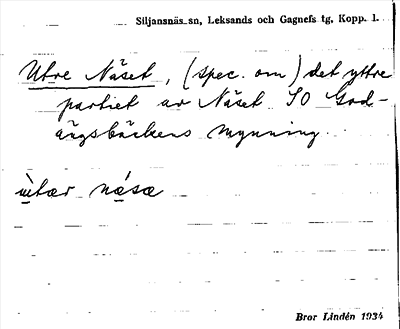 Siljansnäs sn, Leksands och Gagnefs tg, Kopp. l.
Utre Näset, (spec. om) det yttre
partiet av Näset SO God-
ängsbäckens mynning.
ùtær násæ
Bror Lindén 1934